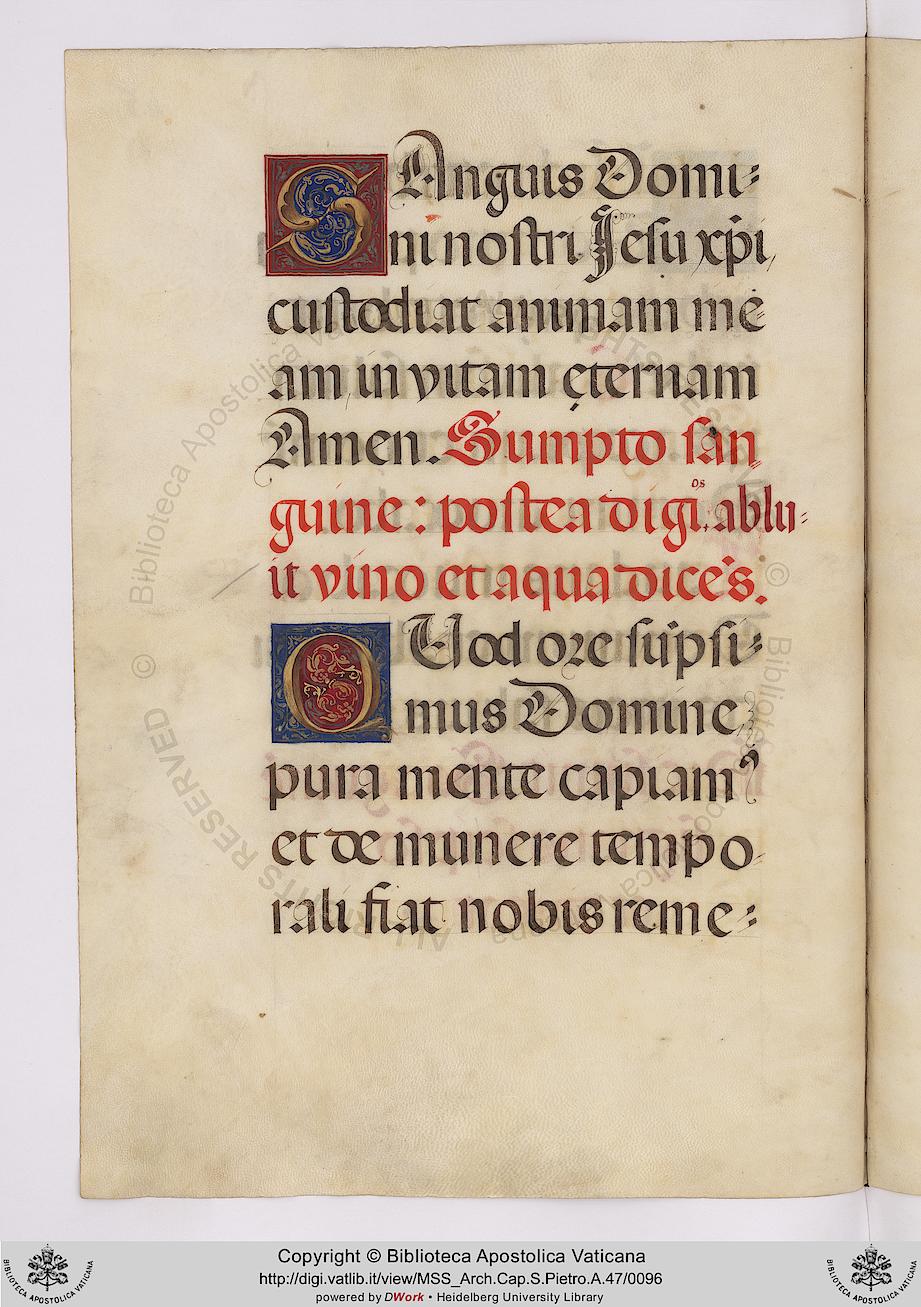 SAnguis Domi-
ni nostri Jesu xp̄i
custodiat animam me-
am in vitam ęternam
Amen. Sumpto san-
guine: postea digi.os ablu-
it vino et aqua dicēs.
QUod ore sūpsi-
mus Domine
pura mente capiam9
et de munere tempo-
rali fiat nobis reme-
Copyright © Biblioteca Apostolica Vaticana
http://digi.vatlib.it/view/MSS_Arch.Cap.S.Pietro.A.47/0096
powered by DWork • Heidelberg University Library
BIBLIOTECA APOSTOLICA VATICANA
BIBLIOTECA APOSTOLICA VATICANA